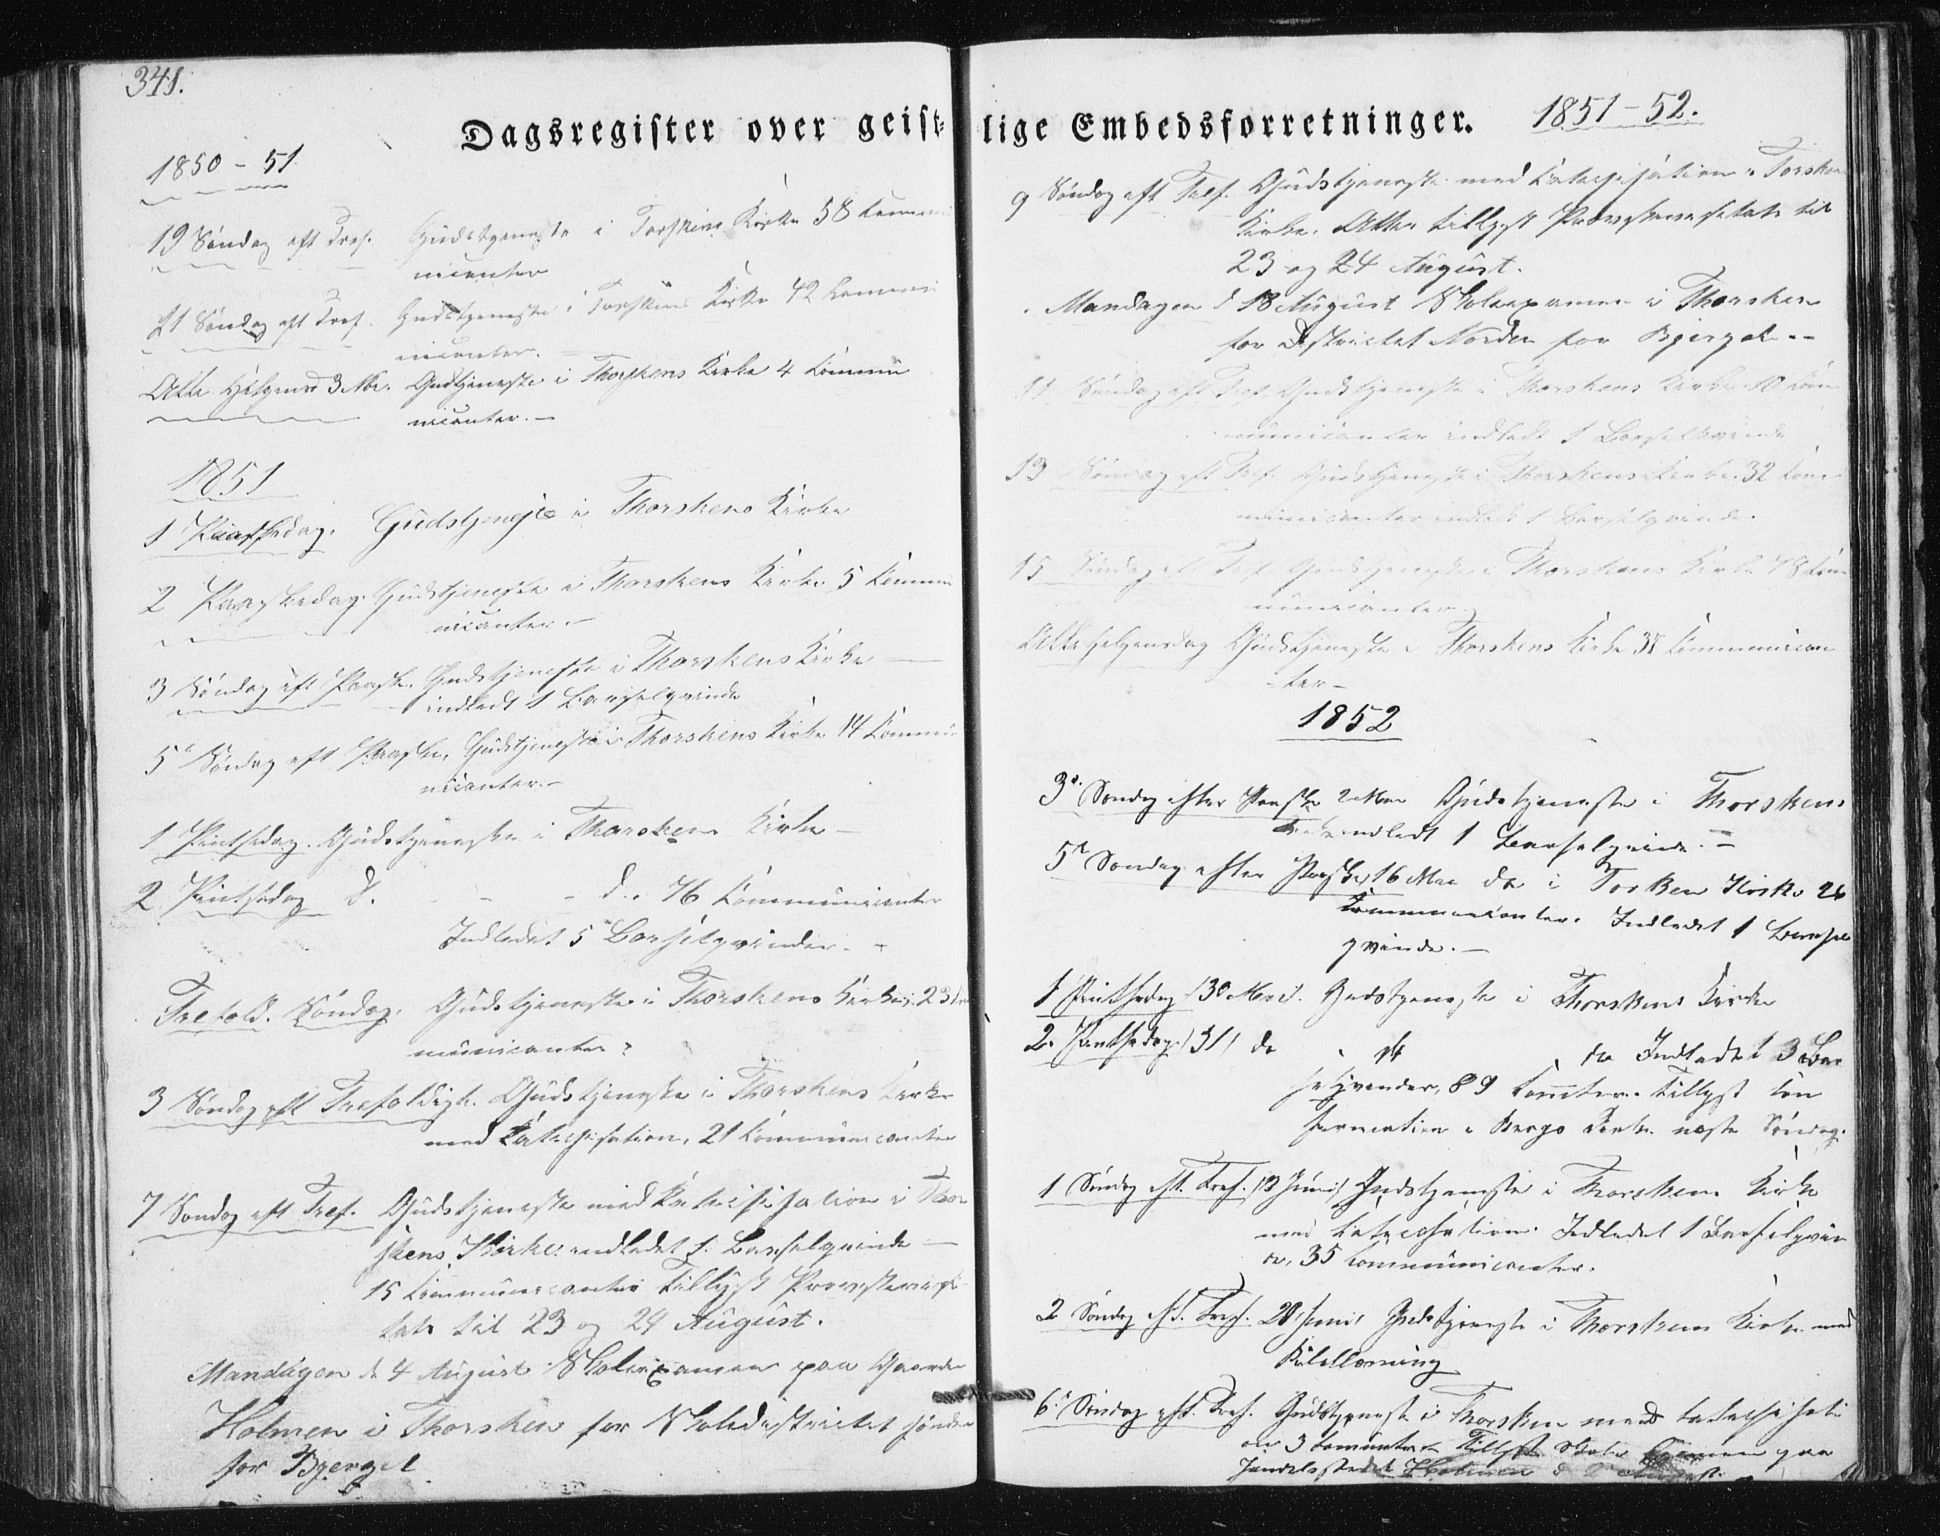 341.
Dagsregister over geist-
1850 - 51
19 Søndag eft Tref. Gudstjeneste i Torskens Kirke 58 Commu
nicanter
21 Søndag eft Tref. Gudstjeneste i Torskens Kirke 42 Commu
nicanter. -
Alle Helgensd 3 Nov. Gudstjeneste i Thorskens Kirke 4 Commu
nicanter. -
1851
1 Paaskedag. Gudstjeneste i Thorskens Kirke
2 Paaskedag. Gudstjeneste i Thorskens Kirke 5 Commu
nicanter. -
3 Søndag eft Paaske. Gudstjeneste i Thorskens Kirke -
indledt 1 Barselqvinde
5te Søndag eft Paaske, Gudstjeneste i Thorskens Kirke 14 Commu
nicanter. -
1 Pintsedag. Gudstjeneste i Thorskens Kirke -
2 Pintsedag d. - - - d. . 76 Communicanter
Indledet 5 Barselqvinder. -
Trefold. Søndag. Gudstjeneste i Thorskens Kirke. 23 Co
municanter
3 Søndag eft Trefoldigh. Gudstjeneste i Thorskens Kirke
med Katechisation, 21 Communicanter
7 Søndag eft Tref. Gudstjeneste med Katechisation i Thor
skens Kirke. indledet 1. Barselqvinde -
15 Communicanter Tillyst Provstevisi
tats til 23 og 24 August.
Mandagen d. 4 August Skoleexamen paa Gaarden
Holmen i Thorsken for Skoledistrictet sønden
for Bjerget
lige Embedsforretninger. 1851-52.
9 Søndag eft Tref. Gudstjeneste med Katechisation i Torsken
Kirke. Atter tillyst Provstevisitats til
23 og 24 August.
Mandagen d 18 August Skoleexamen i Thorsken
for Districtet Norden for Bjerget. -
11 Søndag eft Tref. Gudstjeneste i Thorskens Kirke 10 Com
municanter indledt 1 Barselqvinde
13 Søndag eft Tref. Gudstjeneste i Thorskens Kirke. 32 Com
municanter indledt 1 Barselqvinde.
15 Søndag eft Tref Gudstjeneste i Thorskens Kirke 78 Com
municanter.
Alle helgensdag Gudstjeneste i Thorskens Kirke 38 Communican
ter -
1852
3die Søndag efter Paaske 2 Mai Gudstjeneste i Thorskens
Kirke indledt 1 Barselqvinde. -
5te Søndag efter Paaske 16 Mai do i Torsken Kirke 26
Communicanter. Indledet 1 Barsel
qvinde. -
1 Pintsedag (30 Mai). Gudstjeneste i Thorskens Kirke
2. Pintsedag (31) do do Indledet 3 Bar
selqvinder, 89 Comter. Tillyst Con
firmation i Bergs Kirke næste Søndag.
1 Søndag eft. Tref. (13 Juni) Gudstjeneste i Thorskens Kirke
med Katechisation. Indledet 1 Barselqvin
de, 35 Communicanter.
2 Søndag eft. Tref. 20 Juni, Gudstjeneste i Thorskens Kirke med
Bibellæsning
6te Søndag eft. Tref. Gudstjeneste i Thorsken med Katechisati
on 3 Comunter. Tillyst Skole Examen paa
Handelsstedet Holmen d 2 August.